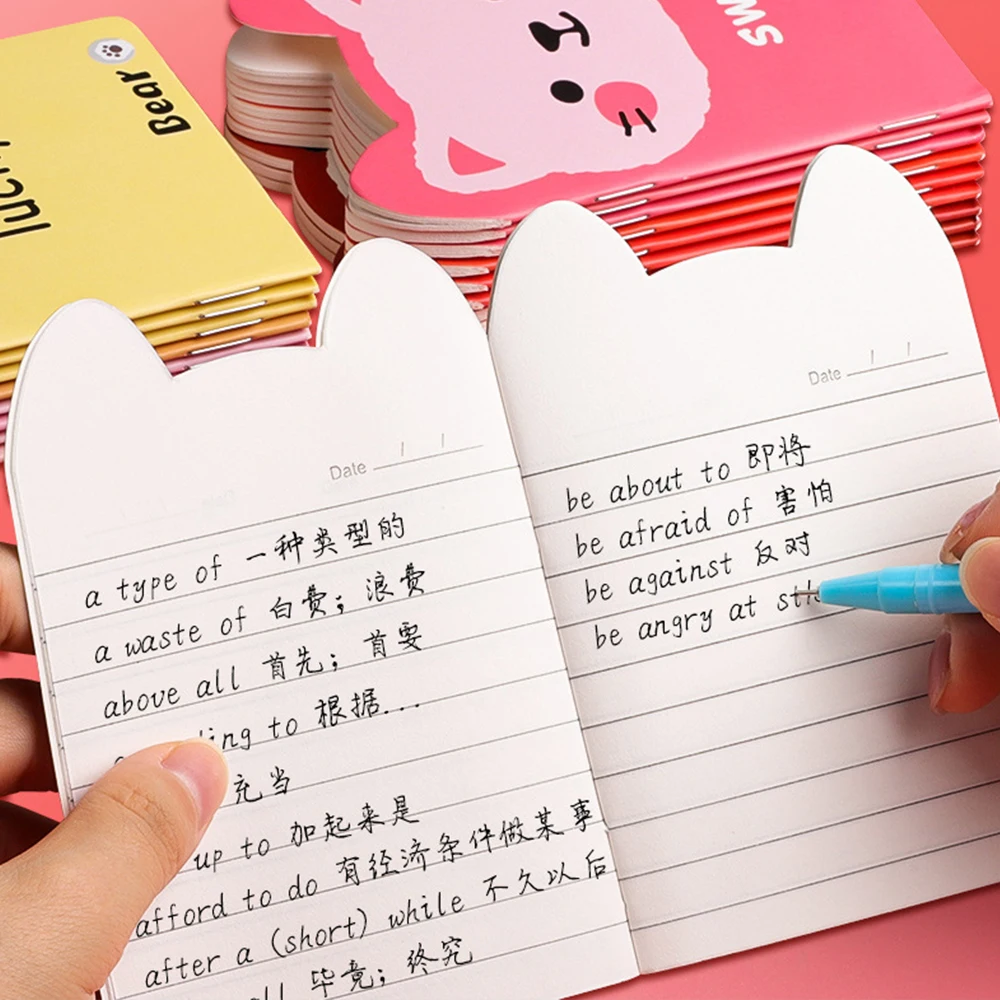 Bear
SW
Date
a type of 一种类型的
a waste of 白费；浪费
above all 首先；首要
ing to 根据...
充当
up to 加起来是
afford to do 有经济条件做某事
after a (short) while 不久以后
all 毕竟；终究
Date
be about to 即将
be afraid of 害怕
be against 反对
be angry at